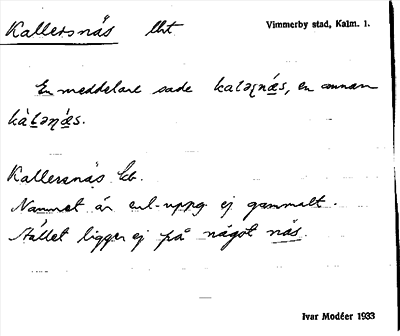 Kallersnäs lht Vimmerby stad, Kalm. l.
En meddelare sade kaləɳǽs, en annan
kàləɳǽs.
Kallersnäs
Namnet är enl. uppg. ej gammalt.
Stället ligger ej på något näs.
Ivar Modéer 1933